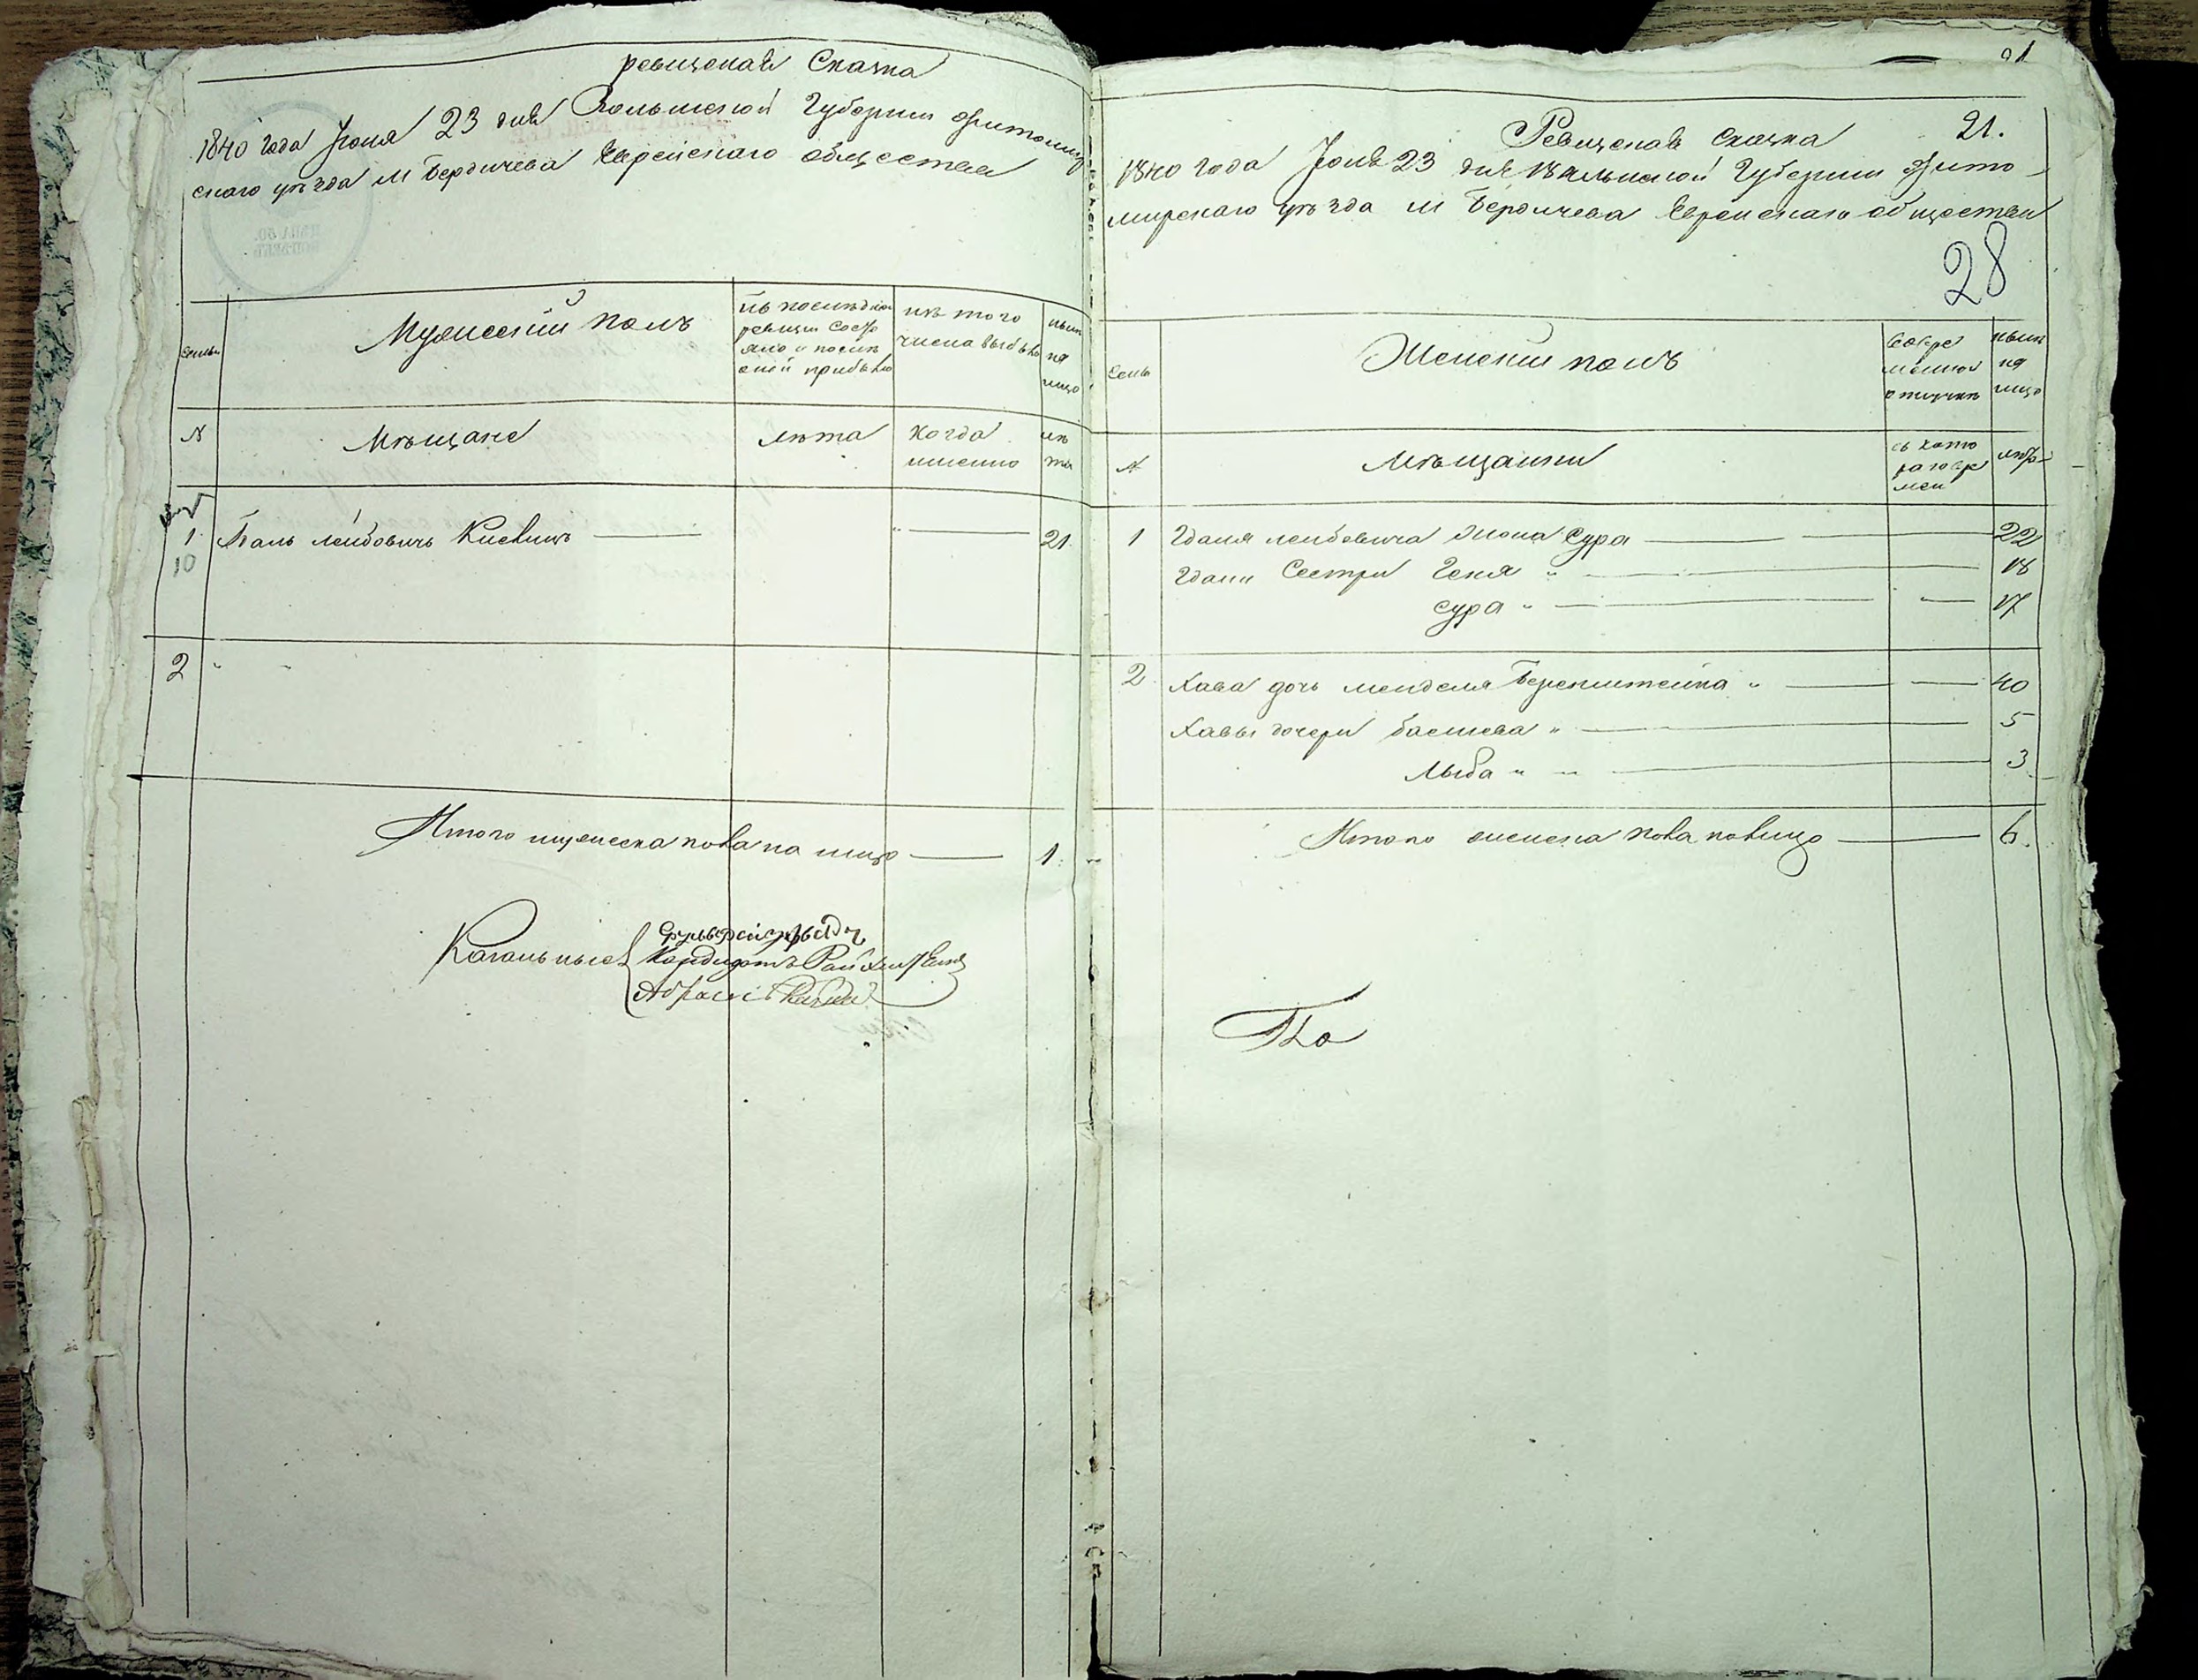 ревизская Сказка
1840 года Июня 23 дня Волынской Губернии Житомир
скаго уезда м Бердичева Еврейскаго общества
семьи
Мужеский полъ
по последней
ревизии состо
яло и после
оной прибыло
изъ того
числа выбыло
ныне
на
лицо
№
Мещане
лета
когда
именно
ле
та
1
10
Лейбовичь
21
2
Итого мужеска пола на лицо 1
Кагальные
Кандидатъ
21
Ревизская Сказка 21.
1840 года Июня 23 дня Волынской Губернии Жито
мирскаго уезда м Бердичева Еврейскаго общества
28
Семьи
Женский полъ
во вре
менной
отлучке
ныне
на
лицо
№
Мещанки
съ кото
раго вре
мен
лета
1 Лейбовича жена Сура 22
Сестры Геня 18
сура 17
2 Хава дочь менделя Беренштейна 40
Хавы дочери басшева 5
3
Итого женска пола налицо 6.